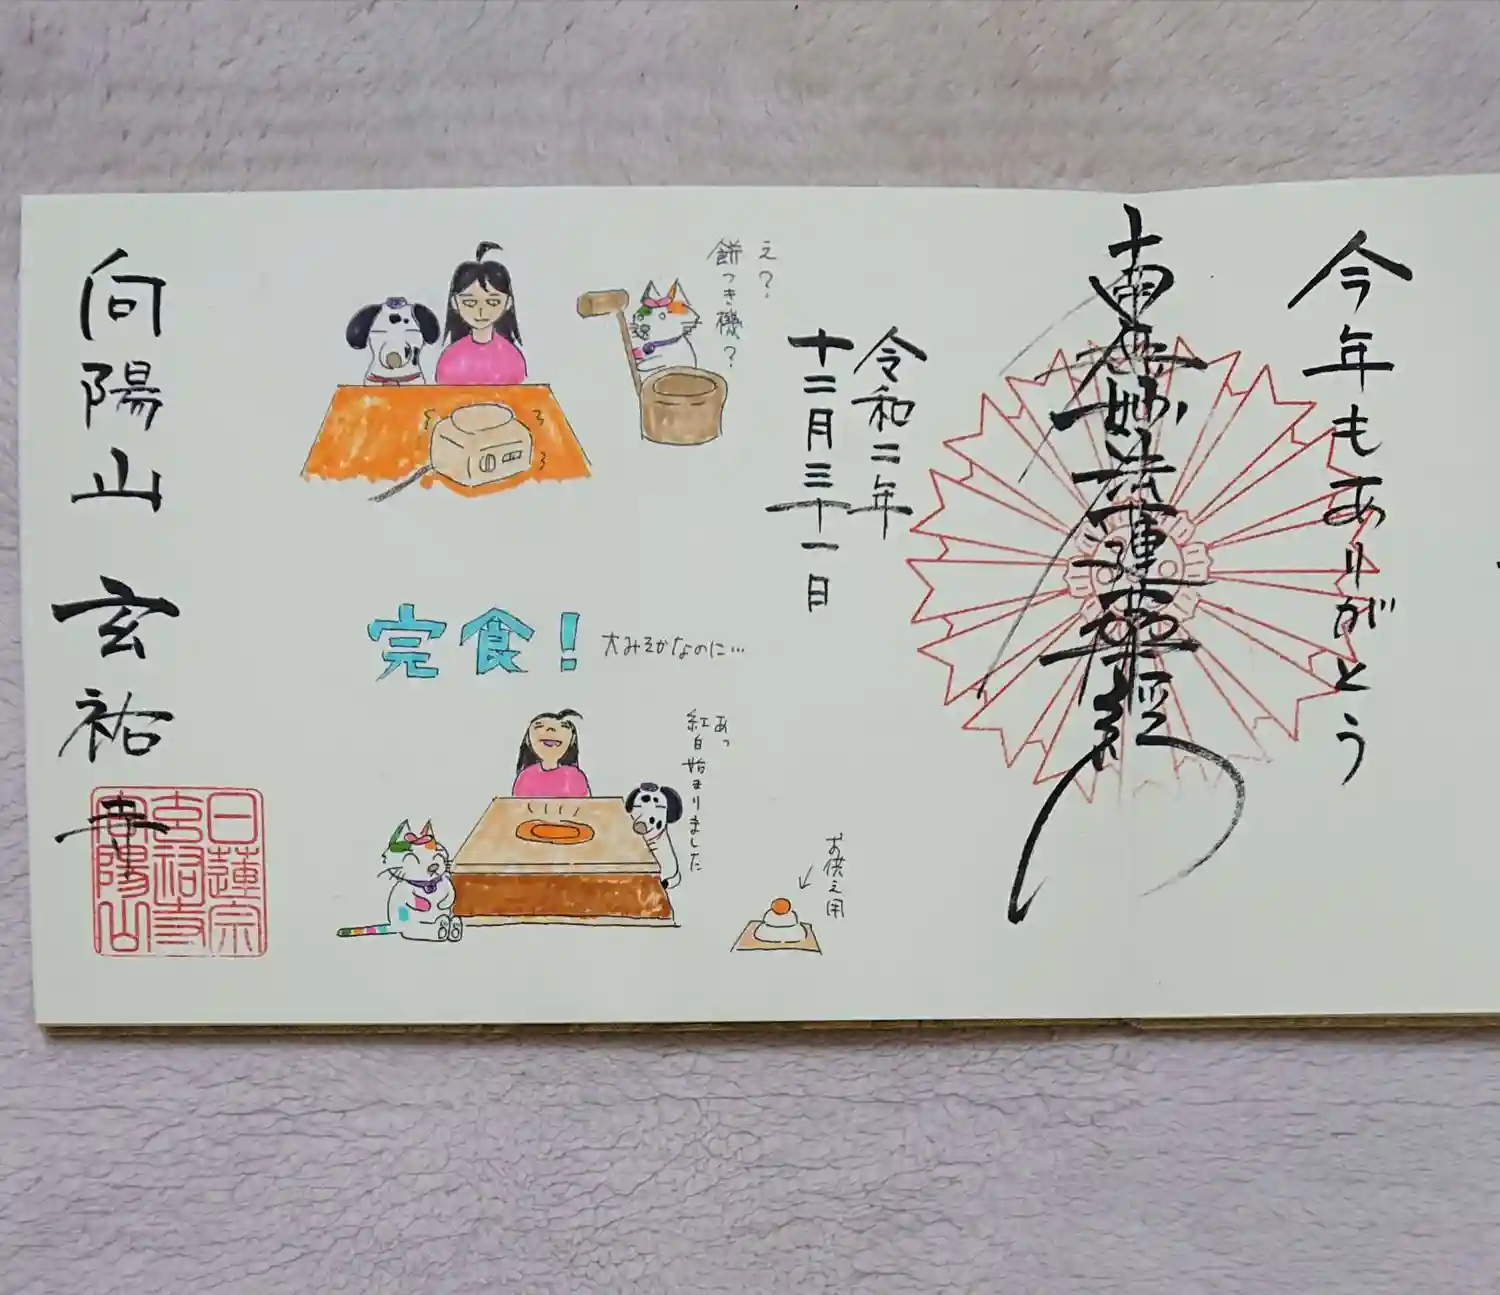 今年もありがとう
南無妙法蓮華経
令和二年
十二月三十一日
え？
餅つき機？
完食！
大みそかなのに…
あっ
紅白始まりました
お供え用
向陽山 玄祐寺
日蓮宗
玄祐寺
向陽山